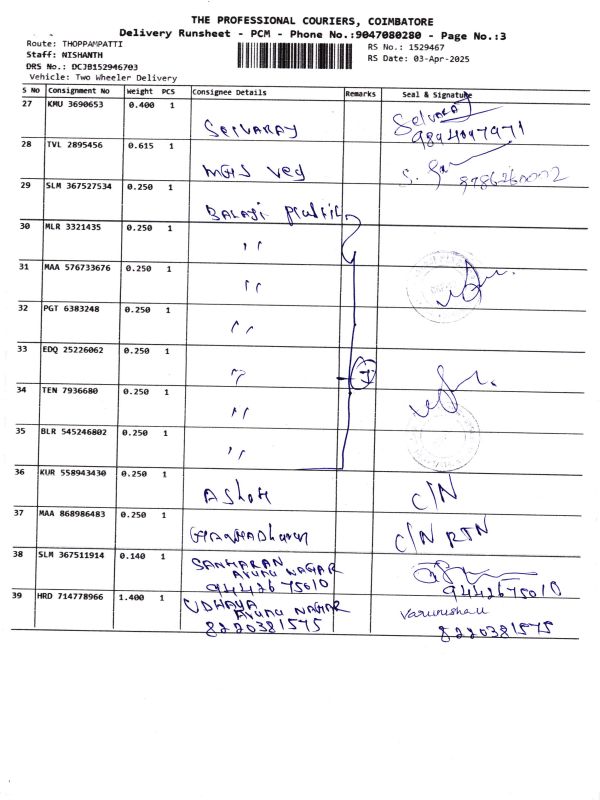 THE PROFESSIONAL COURIERS, COIMBATORE
Delivery Runsheet - PCM - Phone No.:9047080280 - Page No.:3
Route: THOPPAMPATTI
RS No.: 1529467
Staff: NISHANTH
RS Date: 03-Apr-2025
DRS No.: DCJB152946703
Vehicle: Two Wheeler Delivery
S No Consignment No Weight PCS Consignee Details Remarks Seal & Signature
27 KMU 3690653 0.400 1
Selvaraj Selvaraj
9894097971
28 TVL 2895456 0.615 1
MGS veg
29 SLM 367527534 0.250 1
Balaji
30 MLR 3321435 0.250 1
"
31 MAA 576733676 0.250 1
"
32 PGT 6383248 0.250 1
"
33 EDQ 25226062 0.250 1
"
7
34 TEN 7936680 0.250 1
"
35 BLR 545246802 0.250 1
"
36 KUR 558943430 0.250 1
Ashok C/N
37 MAA 868986483 0.250 1
C/N RTN
38 SLM 367511914 0.140 1
SANKARAN
AYUNU NAGAR
9442675010 9442675010
39 HRD 714778966 1.400 1
UDHAYA
AYUNU NAGAR
8220381575 8220381575